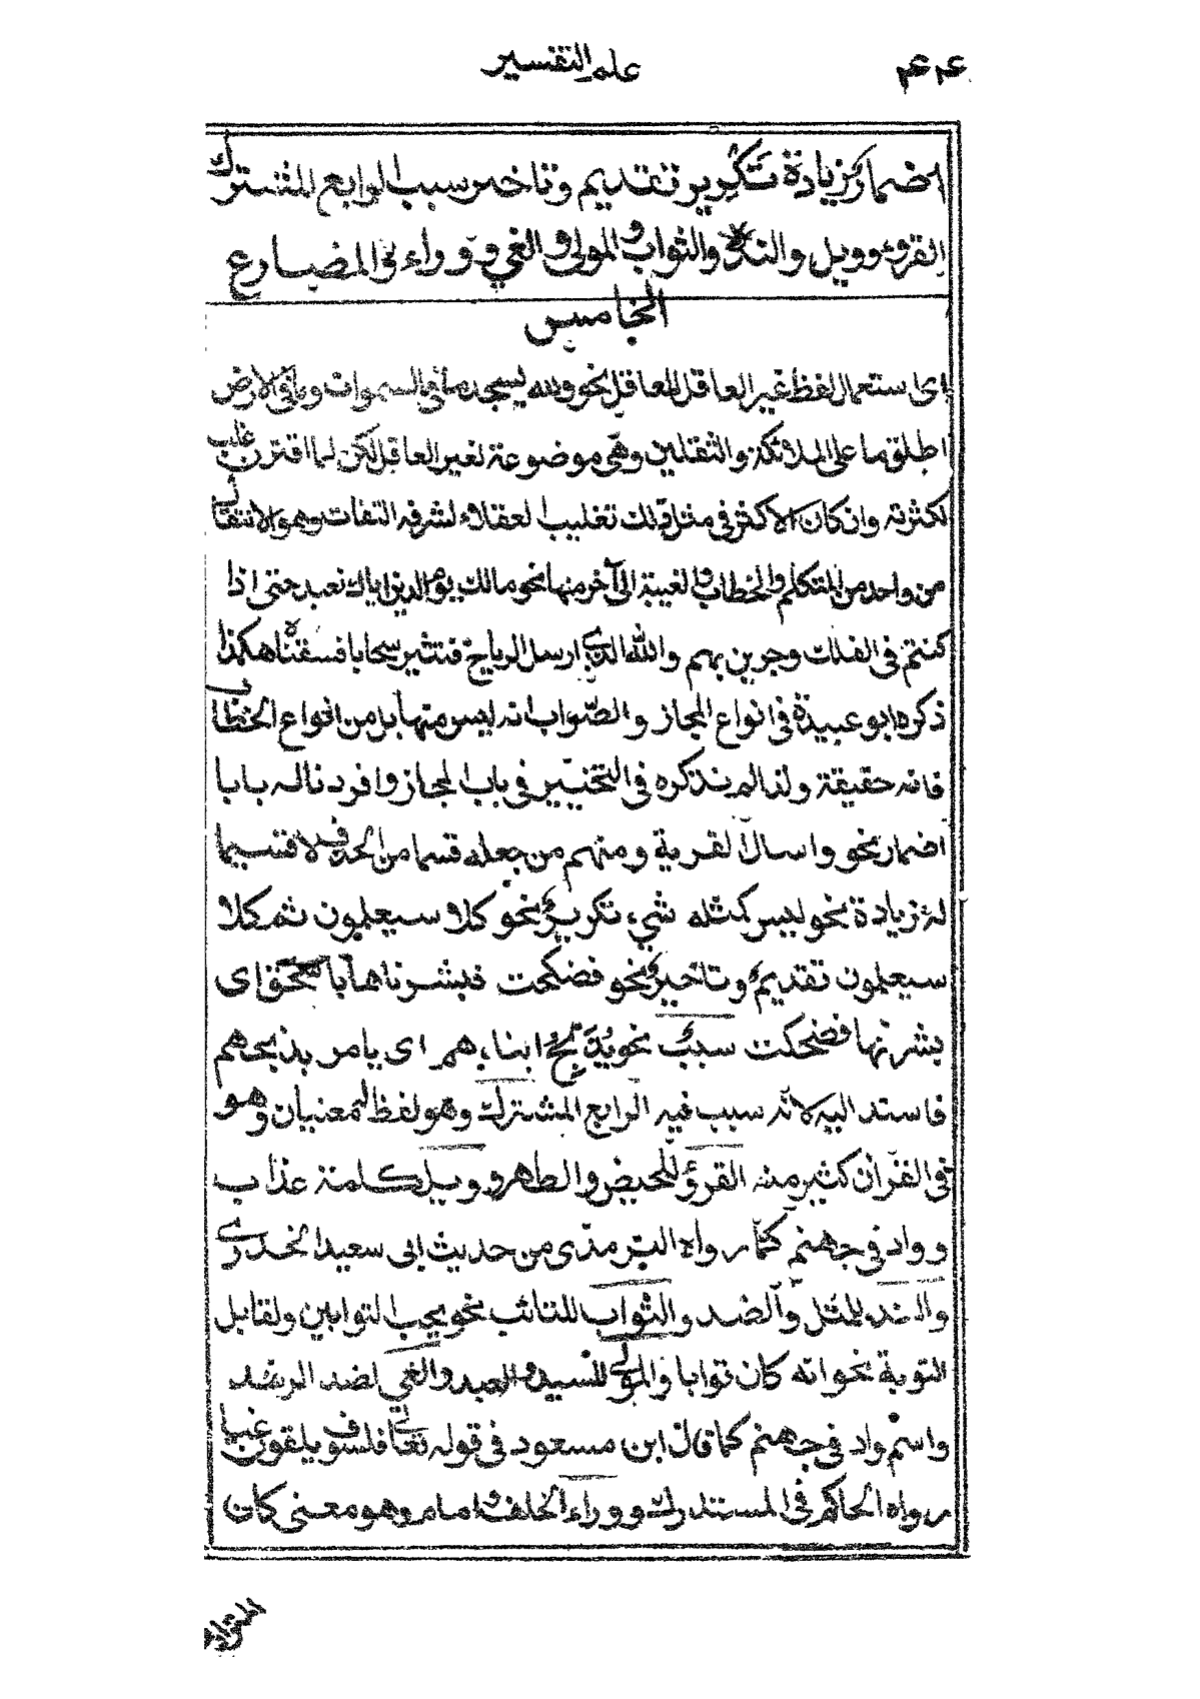 علم التفسير
٤٤
اضمار زيادة تكرير تقديم وتاخير سبب الرابع المشترك
القرؤ وويل والند والتواب والمولى والغي ووراء في المضارع
الخامس
اى استعمال لفظ غير العاقل للعاقل نحو ولله يسجد ما في السموات وما في الارض
اطلق ما على الملائكة والثقلين وهي موضوعة لغير العاقل لكن لما اقترن غلب
لكثرته وان كان الاكثر في مثل ذلك تغليب العقلاء لشرفه التفات وهو الانتقال
من واحد من المتكلم والخطاب والغيبة الى آخر منها نحو مالك يوم الدين اياك نعبد حتى اذا
كنتم في الفلك وجرين بهم والله الذي ارسل الرياح فتثير سحابا فسقناه هكذا
ذكره ابو عبيدة في انواع المجاز والصواب انه ليس منها بل من انواع الخطاب
فانه حقيقة ولذا لم نذكره في التحبير في باب المجاز وافردنا له بابا
اضمار نحو واسال القرية ومنهم من جعله قسما من الحذف لا قسيما
له زيادة نحو ليس كمثله شيء تكرير نحو كلا سيعلمون ثم كلا
سيعلمون تقديم وتاخير نحو فضحكت فبشرناها باسحق اى
بشرنها فضحكت سبب نحو يذبح ابناءهم اى يامر بذبحهم
فاسند اليه لانه سبب فيه الرابع المشترك وهو لفظ له معنيان وهو
في القرآن كثير منه القرؤ للحيض والطهر وويل كلمة عذاب
وواد في جهنم كما رواه الترمذى من حديث ابى سعيد الخدرى
والند للمثل والضد والتواب للتائب نحو يحب التوابين ولقابل
التوبة نحو انه كان توابا والمولى للسيد والعبد والغي لضد الرشد
واسم واد في جهنم كما قال ابن مسعود في قوله تعالى فسوف يلقون غيا
رواه الحاكم في المستدرك ووراء الخلف وامام وهو معنى كان